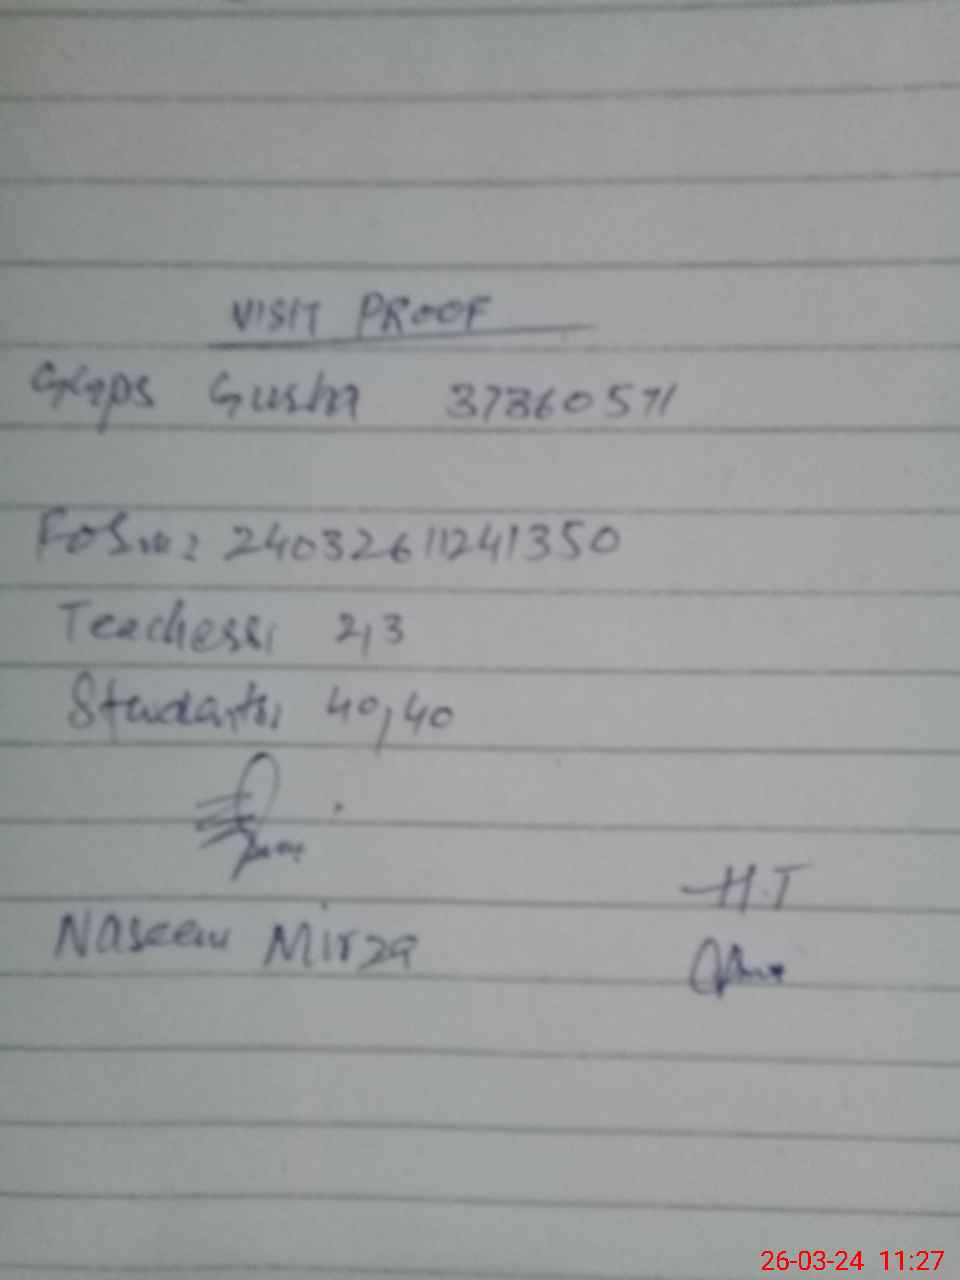 VISIT PROOF
GGPS Gusha 37360571
FOSM: 24032611241350
Teachers: 2,3
Students: 40,40
Naseem Mirza
H.T
26-03-24 11:27